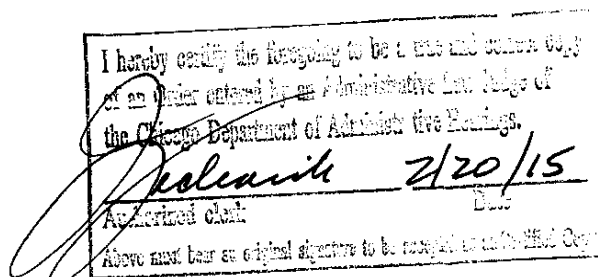 I hereby certify the foregoing to be a true and correct copy
of an Order entered by an Administrative Law Judge of
the Chicago Department of Administrative Hearings.
2/20/15
Authorized clerk Date
Above must bear an original signature to be accepted as an Certified Copy